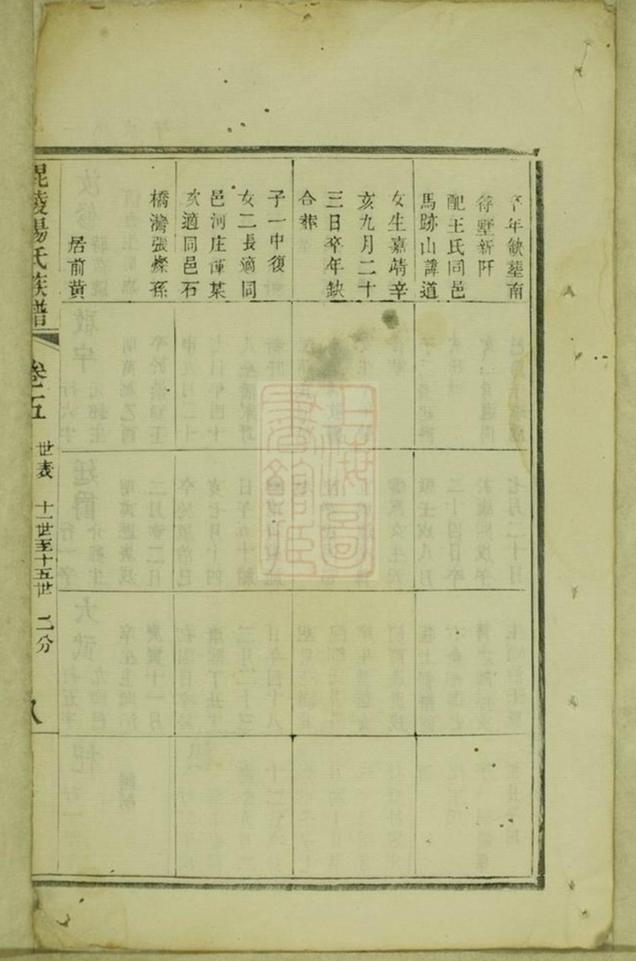 卒年缺墓南
符墅新阡
配王氏同邑
馬跡山諱道
女生嘉靖辛
亥九月二十
三日卒年缺
合葬
子一中復
女二長適同
邑河庄謹某
次適同邑石
橋灣張燦孫
居前黃
毘陵楊氏族譜
卷五
世表 十一世至十五世 二分
八
上海圖書館藏